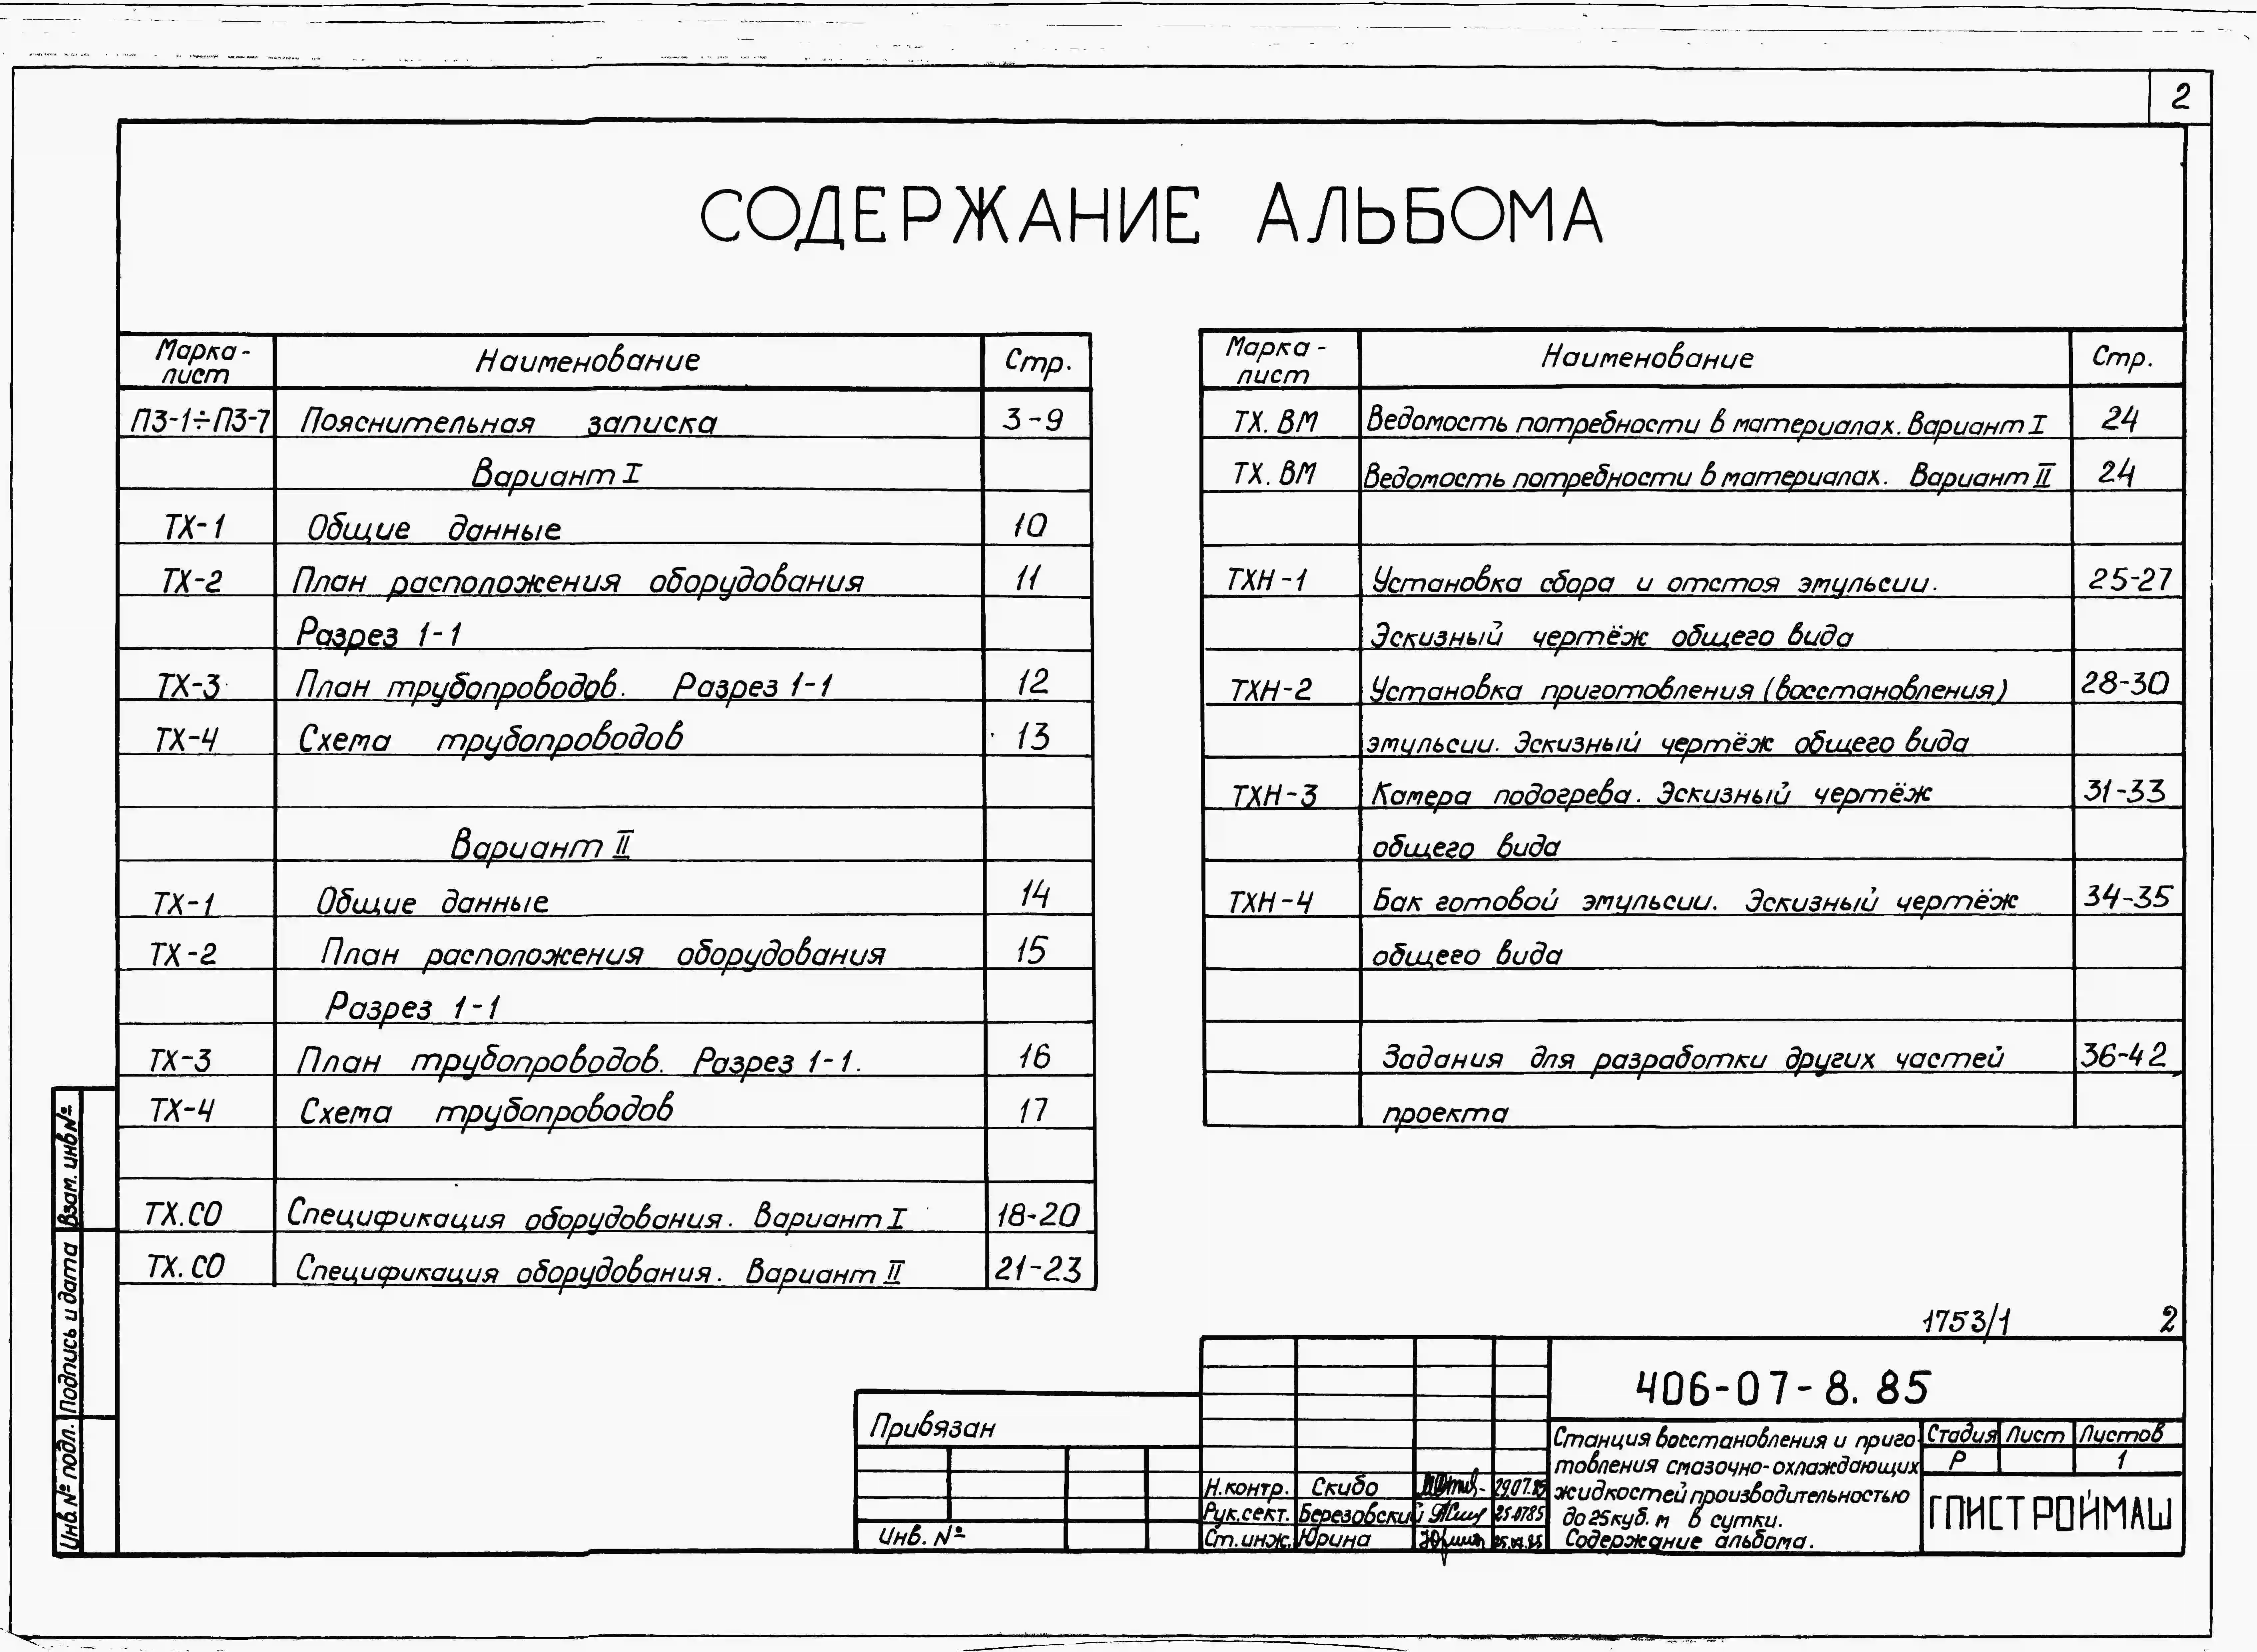 2
СОДЕРЖАНИЕ АЛЬБОМА
Марка-лист Наименование Стр.
ПЗ-1÷ПЗ-7 Пояснительная записка 3-9
Вариант I
ТХ-1 Общие данные 10
ТХ-2 План расположения оборудования 11
Разрез 1-1
ТХ-3 План трубопроводов. Разрез 1-1 12
ТХ-4 Схема трубопроводов 13
Вариант II
ТХ-1 Общие данные 14
ТХ-2 План расположения оборудования 15
Разрез 1-1
ТХ-3 План трубопроводов. Разрез 1-1. 16
ТХ-4 Схема трубопроводов 17
ТХ.СО Спецификация оборудования. Вариант I 18-20
ТХ.СО Спецификация оборудования. Вариант II 21-23
Марка-лист Наименование Стр.
ТХ.ВМ Ведомость потребности в материалах. Вариант I 24
ТХ.ВМ Ведомость потребности в материалах. Вариант II 24
ТХН-1 Установка сбора и отстоя эмульсии. 25-27
Эскизный чертёж общего вида
ТХН-2 Установка приготовления (восстановления) 28-30
эмульсии. Эскизный чертёж общего вида
ТХН-3 Камера подогрева. Эскизный чертёж 31-33
общего вида
ТХН-4 Бак готовой эмульсии. Эскизный чертёж 34-35
общего вида
Задания для разработки других частей 36-42
проекта
Взам. инв№
Подпись и дата
Инв № подл.
1753/1 2
406-07-8.85
Привязан
Инв. №
Н.контр. Скибо 29.07.85
Рук.сект. Березовский 25.0785
Ст.инж. Юрина
Станция восстановления и приго
товления смазочно-охлаждающих
жидкостей производительностью
до 25 куб. м в сутки.
Содержание альбома.
Стадия Лист Листов
Р 1
ГПИСТРОЙМАШ